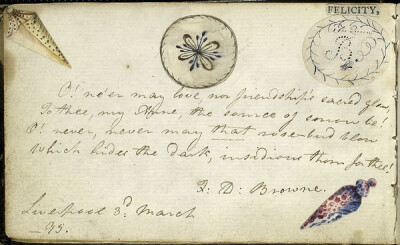 FELICITY,
O! ne'er may love, nor friendship's sacred glow,
To thee, my Anne, the source of sorrow be!
O! never, never may that rose-bud blow
Which hides the dark, insidious thorn for thee!
Liverpool 3d. March
D: Browne.
_ 95.